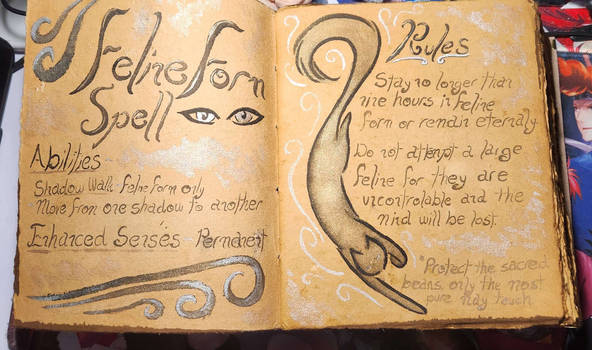 Feline Form
Spell
Abilities
Shadow Walk-Feline Form only
Move from one shadow to another
Enhanced Senses Permanent
Rules
Stay no longer than
nine hours in feline
form or remain eternally
Do not attempt a large
feline for they are
uncontrolable and the
mind will be lost.
*Protect the sacred
beans only the most
pure may touch